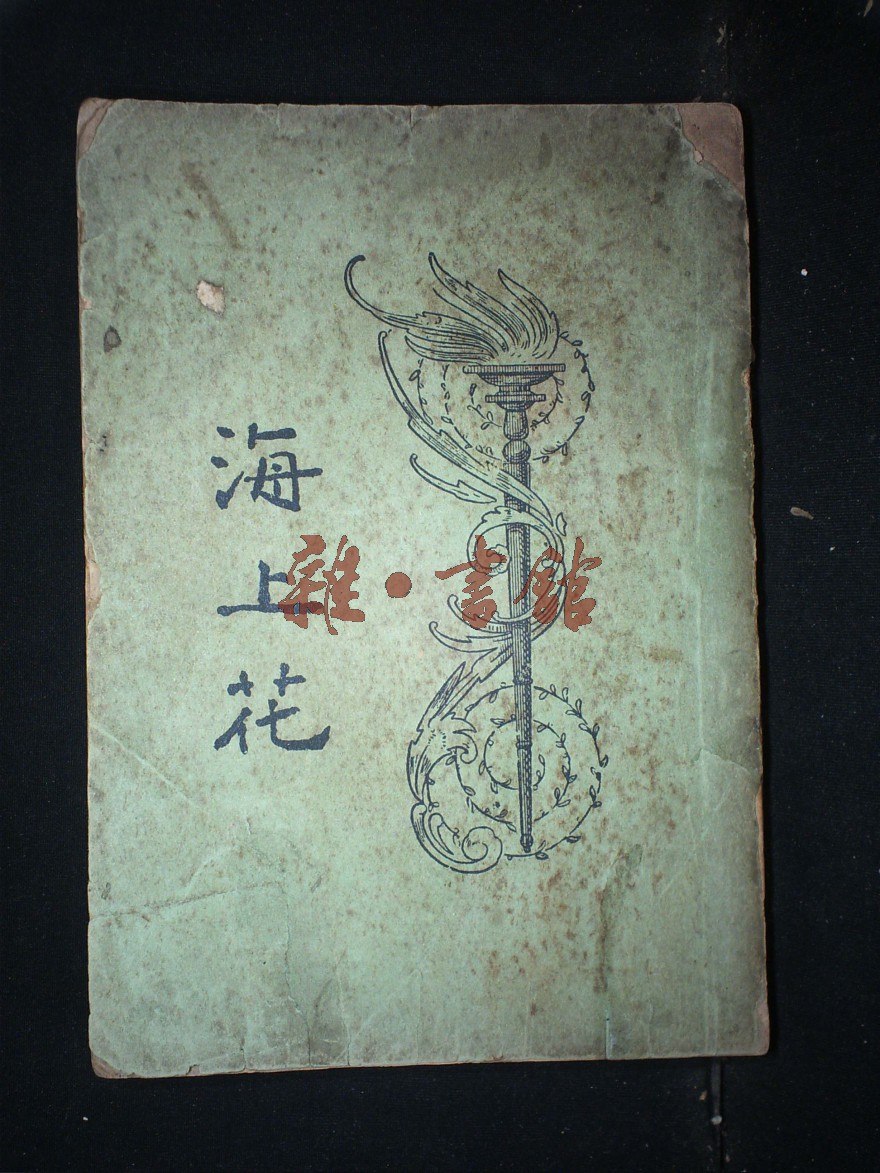 海上花
雜·書館